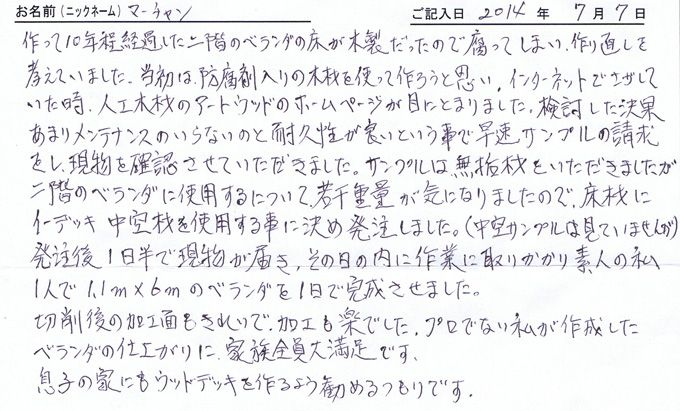 お名前(ニックネーム) マーチャン ご記入日 2014年 7月 7日
作って10年程経過した二階のベランダの床が木製だったので腐ってしまい、作り直しを
考えていました。当初は、防腐剤入りの木材を使って作ろうと思い、インターネットでさがして
いた時、人工木材のアートウッドのホームページが目にとまりました。検討した決果
あまりメンテナンスのいらないのと耐久性が良いという事で早速サンプルの請求
をし、現物を確認させていただきました。サンプルは無垢材をいただきましたが
二階のベランダに使用するについて、若干重量が気になりましたので、床材に
イーデッキ 中空材を使用する事に決め発注しました。(中空サンプルは見ていませんが)
発注後1日半で現物が届き、その日の内に作業に取りかかり素人の私
1人で1.1m×6mのベランダを1日で完成させました。
切削後の加工面もきれいで、加工も楽でした。プロでない私が作成した
ベランダの仕上がりに、家族全員大満足です。
息子の家にもウッドデッキを作るよう勧めるつもりです。